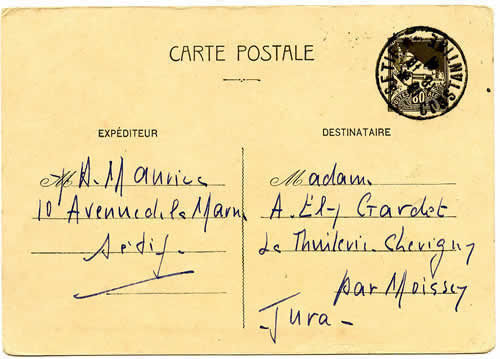 CARTE POSTALE
SETIF
CONSTANTINE
60
EXPÉDITEUR
M A. Maurice
10 Avenue de la Marne
Sétif
DESTINATAIRE
Madame
A. Gardet
La Thuilerie Chevigny
par Moissey
- Jura -